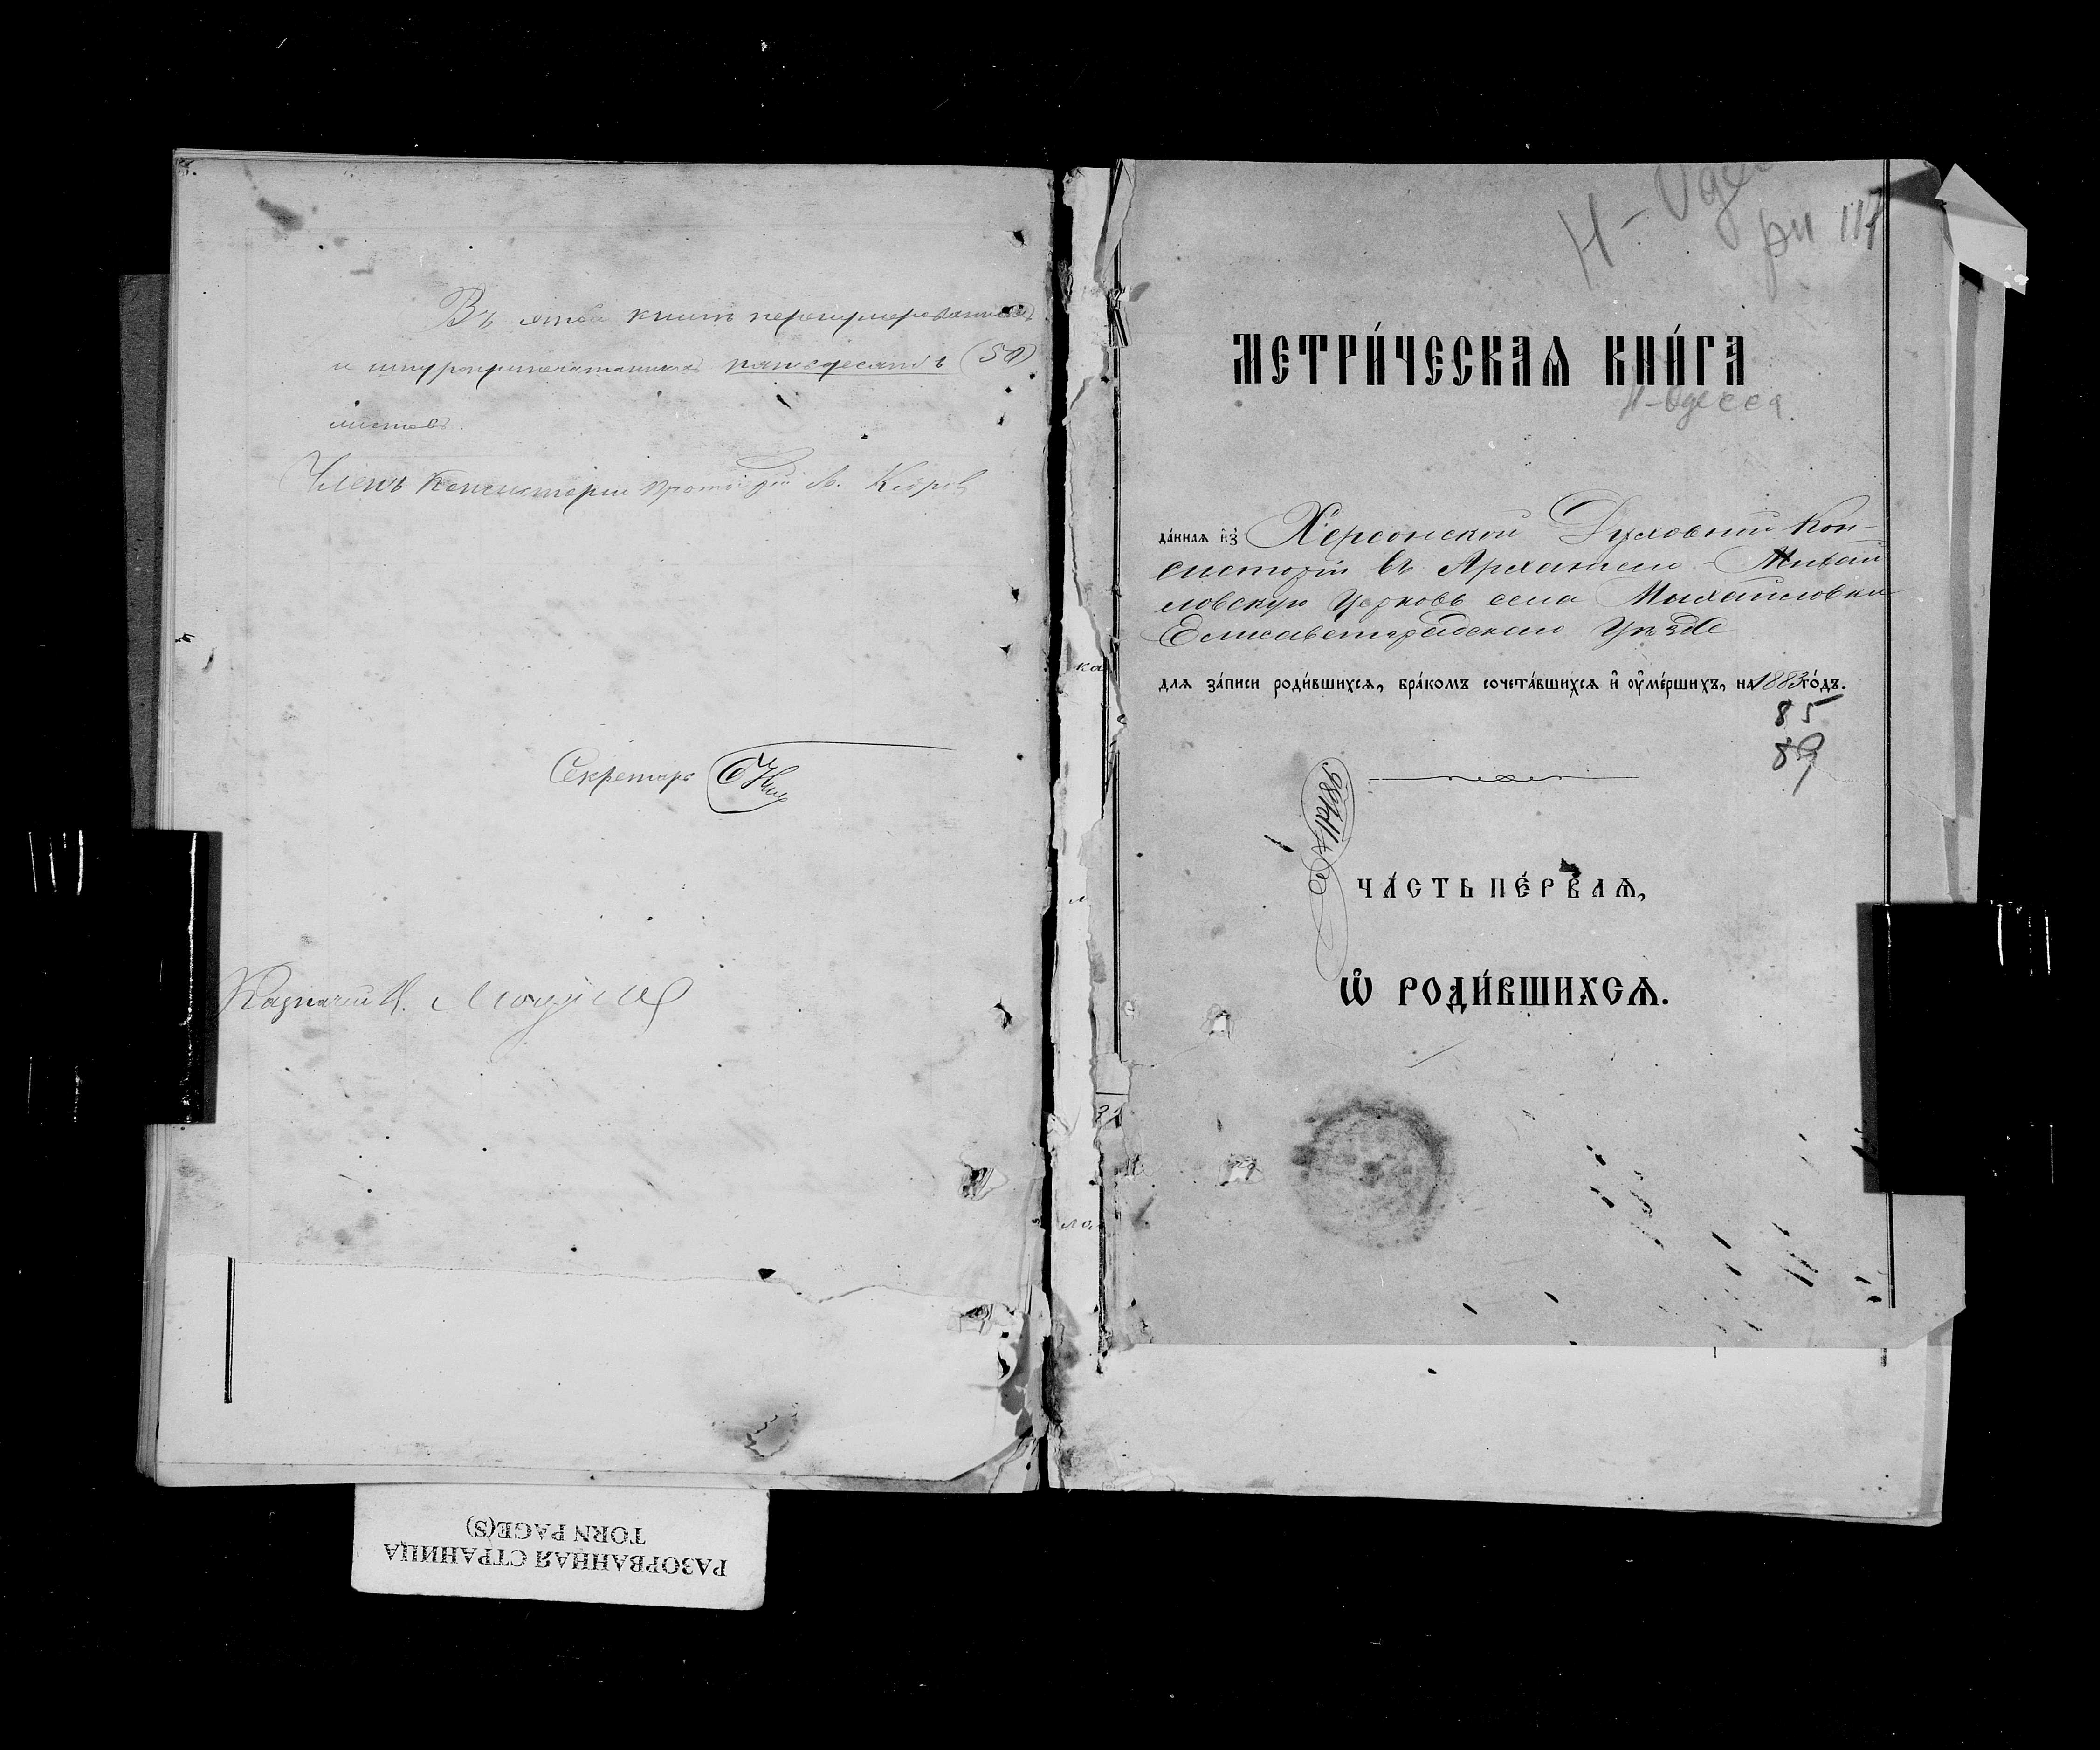 Въ этой книгѣ перенумерованныхъ
и шнуроприпечатанныхъ пятьдесятъ (50)
листовъ.
Членъ Консисторіи
Секретарь
Казначей
Н-Оде
ри 117
МЕТРИ́ЧЕСКАѦ КНИ́ГА
Н-Одесса.
да́ннаѧ и҆з̾ Херсонской Духовной Кон-
систоріи въ Архангело-Михай
ловскую Церковь села Михайловки
Елисаветградскаго Уѣзда
длѧ за́писи роди́вшихсѧ, бра́комъ сочета́вшихсѧ и҆ ѹ҆ме́ршихъ, на 1883 го́дъ.
85
89
ЧА́СТЬ ПЕ́РВАѦ,
Ѡ҆ РОДИ́ВШИХСѦ.
РАЗОРВАННАЯ СТРАНИЦА
TORN PAGE(S)